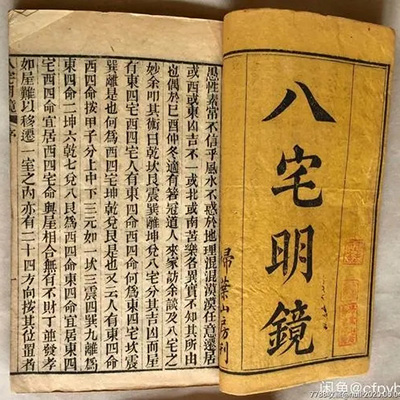 八宅明鏡
葉山房刊
愚性素當不信乎風水不惑於地理混混漠漠任意遷居
或西或東凶吉不一或北或南苦藥各異實不知其所由
也偶於已酉仲冬適有著冠道人來家訪余談及八宅之
妙余叩其術曰乾坎艮震巽離坤兌八宅分其吉凶而屋
有東四宅西四宅人有東四命西四命何為東四宅坎震
巽離是也何為西四宅坤乾兌艮是也又云人有東四命
西四命按甲子分上中下三元如一坎三震四巽九離為
東四命二坤六乾七兌八艮為西四命東四命宜居東四
宅西四命宜居西四宅命與屋相合無有不利財丁並發
如屋難以移遷一室之內亦有二十四方向按其位置者
八宅明鏡 序
闲鱼@cfpyb